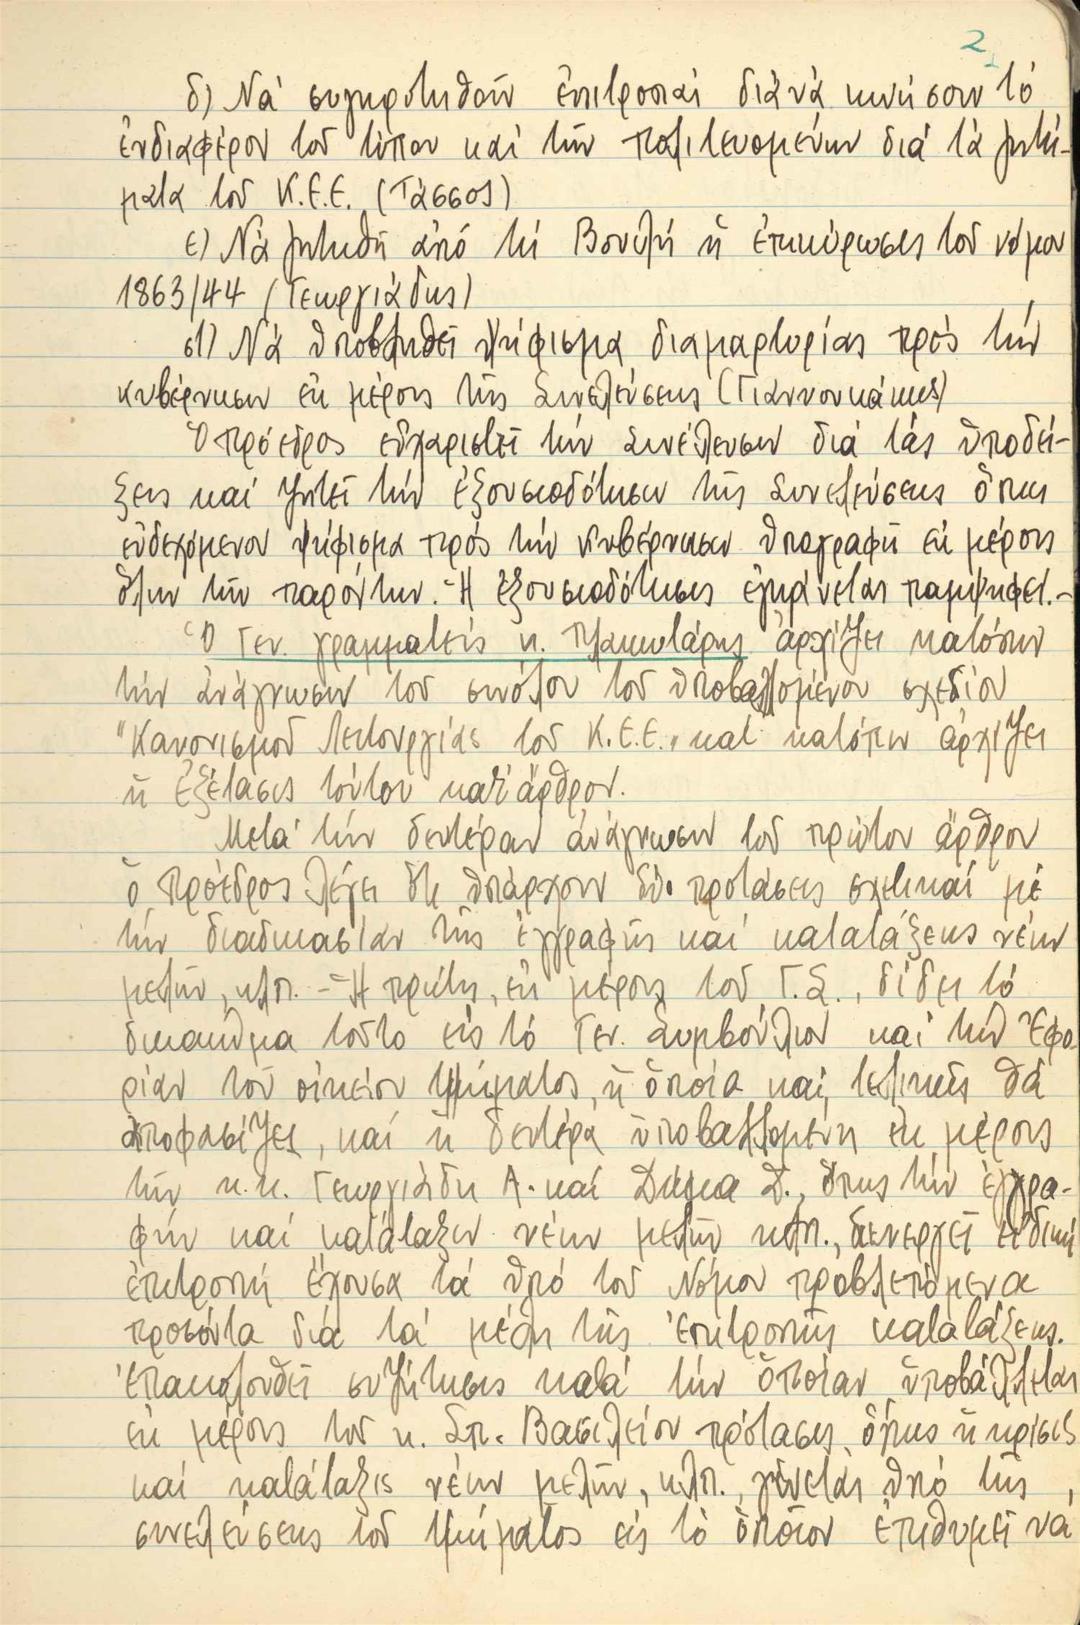 2
δ) Νά συγκροτηθοῦν ἐπιτροπαί διά νά κινήσουν τό
ἐνδιαφέρον τοῦ τύπου καί τῶν πολιτευομένων διά τά ζητή-
ματα τοῦ Κ.Ε.Ε. (Τάσσος)
ε) Νά ζητηθῆ ἀπό τή Βουλή ἡ ἐπικύρωσις τοῦ νόμου
1863/44 (Γεωργιάδης)
στ) Νά ὑποβληθεῖ ψήφισμα διαμαρτυρίας πρός τήν
κυβέρνησιν ἐκ μέρους τῆς Συνελεύσεως (Γιαννουκάκης)
Ὁ πρόεδρος εὐχαριστεῖ τήν Συνέλευσιν διά τάς ὑποδεί-
ξεις καί ζητεῖ τήν ἐξουσιοδότησιν τῆς Συνελεύσεως ὅπως
ἐνδεχόμενον ψήφισμα πρός τήν κυβέρνησιν ὑπογραφῆ ἐκ μέρους
ὅλων τῶν παρόντων. - Ἡ ἐξουσιοδότησις ἐγκρίνεται παμψηφεί. -
Ὁ Γεν. γραμματεύς κ. Πλακωτάρης ἀρχίζει κατόπιν
τήν ἀνάγνωσιν τοῦ συνόλου τοῦ ὑποβαλλομένου σχεδίου
"Κανονισμοῦ Λειτουργίας τοῦ Κ.Ε.Ε." καί κατόπιν ἀρχίζει
ἡ ἐξέτασις τούτου κατ' ἄρθρον.
Μετά τήν δευτέραν ἀνάγνωσιν τοῦ πρώτου ἄρθρου
ὁ πρόεδρος λέγει ὅτι ὑπάρχουν δύο προτάσεις σχετικαί μέ
τήν διαδικασίαν τῆς ἐγγραφῆς καί κατατάξεως νέων
μελῶν, κλπ. - Ἡ πρώτη, ἐκ μέρους τοῦ Γ.Σ., δίδει τό
δικαίωμα τοῦτο εἰς τό Γεν. Συμβούλιον καί τήν Ἐφο-
ρίαν τοῦ οἰκείου τμήματος, ἡ ὁποία καί τελικῶς θά
ἀποφασίζει, καί ἡ δευτέρα ὑποβαλλομένη ἐκ μέρους
τῶν κ.κ. Γεωργιάδη Α. καί Δήμα Δ., ὅπως τήν ἐγγρα-
φήν καί κατάταξιν νέων μελῶν κλπ., διενεργεῖ εἰδική
ἐπιτροπή ἔχουσα τά ὑπό τοῦ Νόμου προβλεπόμενα
προσόντα διά τά μέλη τῆς Ἐπιτροπῆς κατατάξεως.
Ἐπακολουθεῖ συζήτησις κατά τήν ὁποίαν ὑποβάλλεται
ἐκ μέρους τοῦ κ. Σπ. Βασιλείου πρότασις ὅπως ἡ κρίσις
καί κατάταξις νέων μελῶν, κλπ., γίνεται ὑπό τῆς
συνελεύσεως τοῦ τμήματος εἰς τό ὁποῖον ἐπιθυμεῖ νά